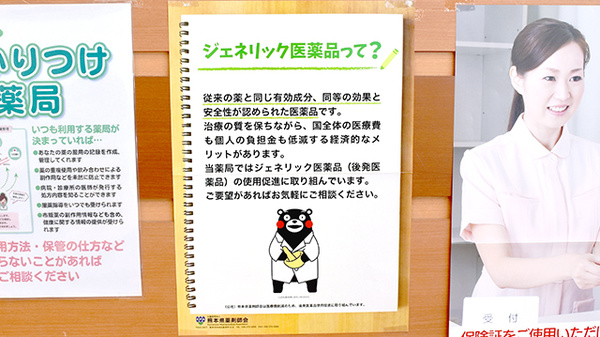 いりつけ
薬局
いつも利用する薬局が
決まっていれば…
あなたの薬の服用の記録を作成、
管理してくれます
薬の重複使用や飲み合わせによる
副作用などを未然に防止できます
病院・診療所の医師が発行する
処方内容を知ることができます
服薬指導をいつでも受けられます
市販薬の副作用情報なども含め、
健康に関する情報の提供が受けら
れます
用方法・保管の仕方など
らないことがあれば
ご相談ください
ジェネリック医薬品って?
従来の薬と同じ有効成分、同等の効果と
安全性が認められた医薬品です。
治療の質を保ちながら、国全体の医療費
も個人の負担金も低減する経済的なメ
リットがあります。
当薬局ではジェネリック医薬品(後発医
薬品)の使用促進に取り組んでいます。
ご要望があればお気軽にご相談ください。
(公社)熊本県薬剤師会は医療費削減のため、後発医薬品使用促進に取り組んでいます。
熊本県薬剤師会
受付
保険証をご使用いただけ